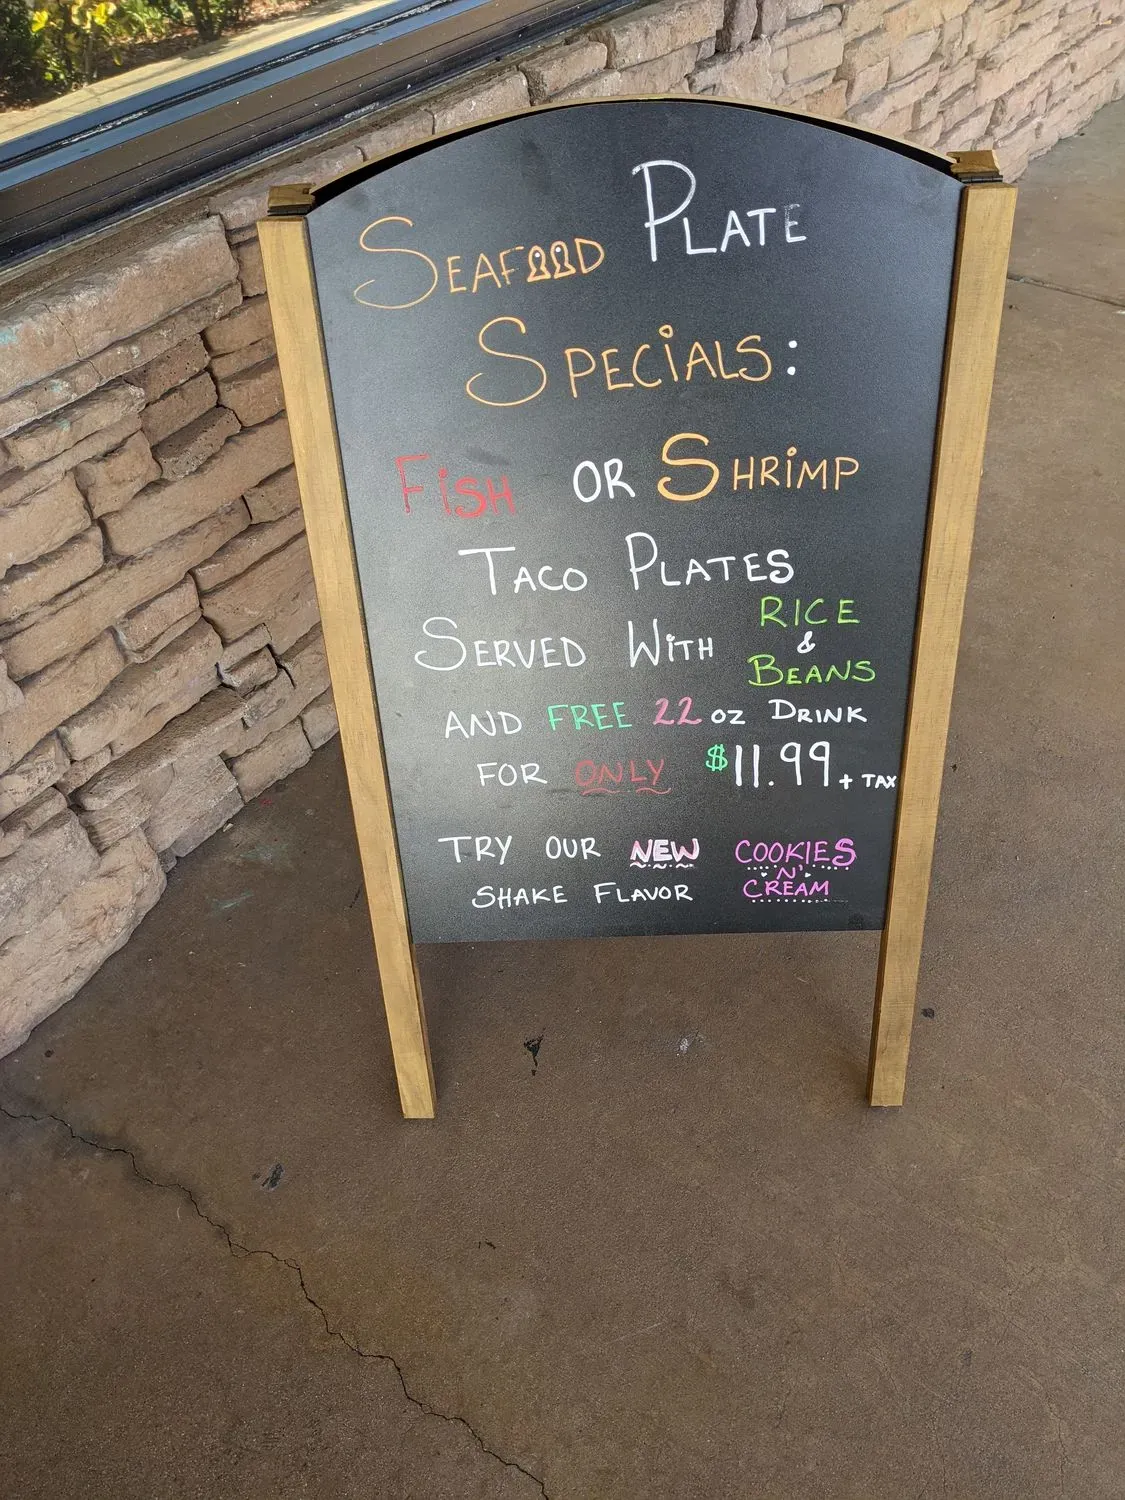 SEAFOOD PLATE
SPECIALS:
FiSH OR SHRiMP
TACO PLATES
SERVED WiTH RICE & BEANS
AND FREE 22 oz DRINK
FOR ONLY $11.99 + TAX
TRY OUR NEW COOKIES N' CREAM
SHAKE FLAVOR